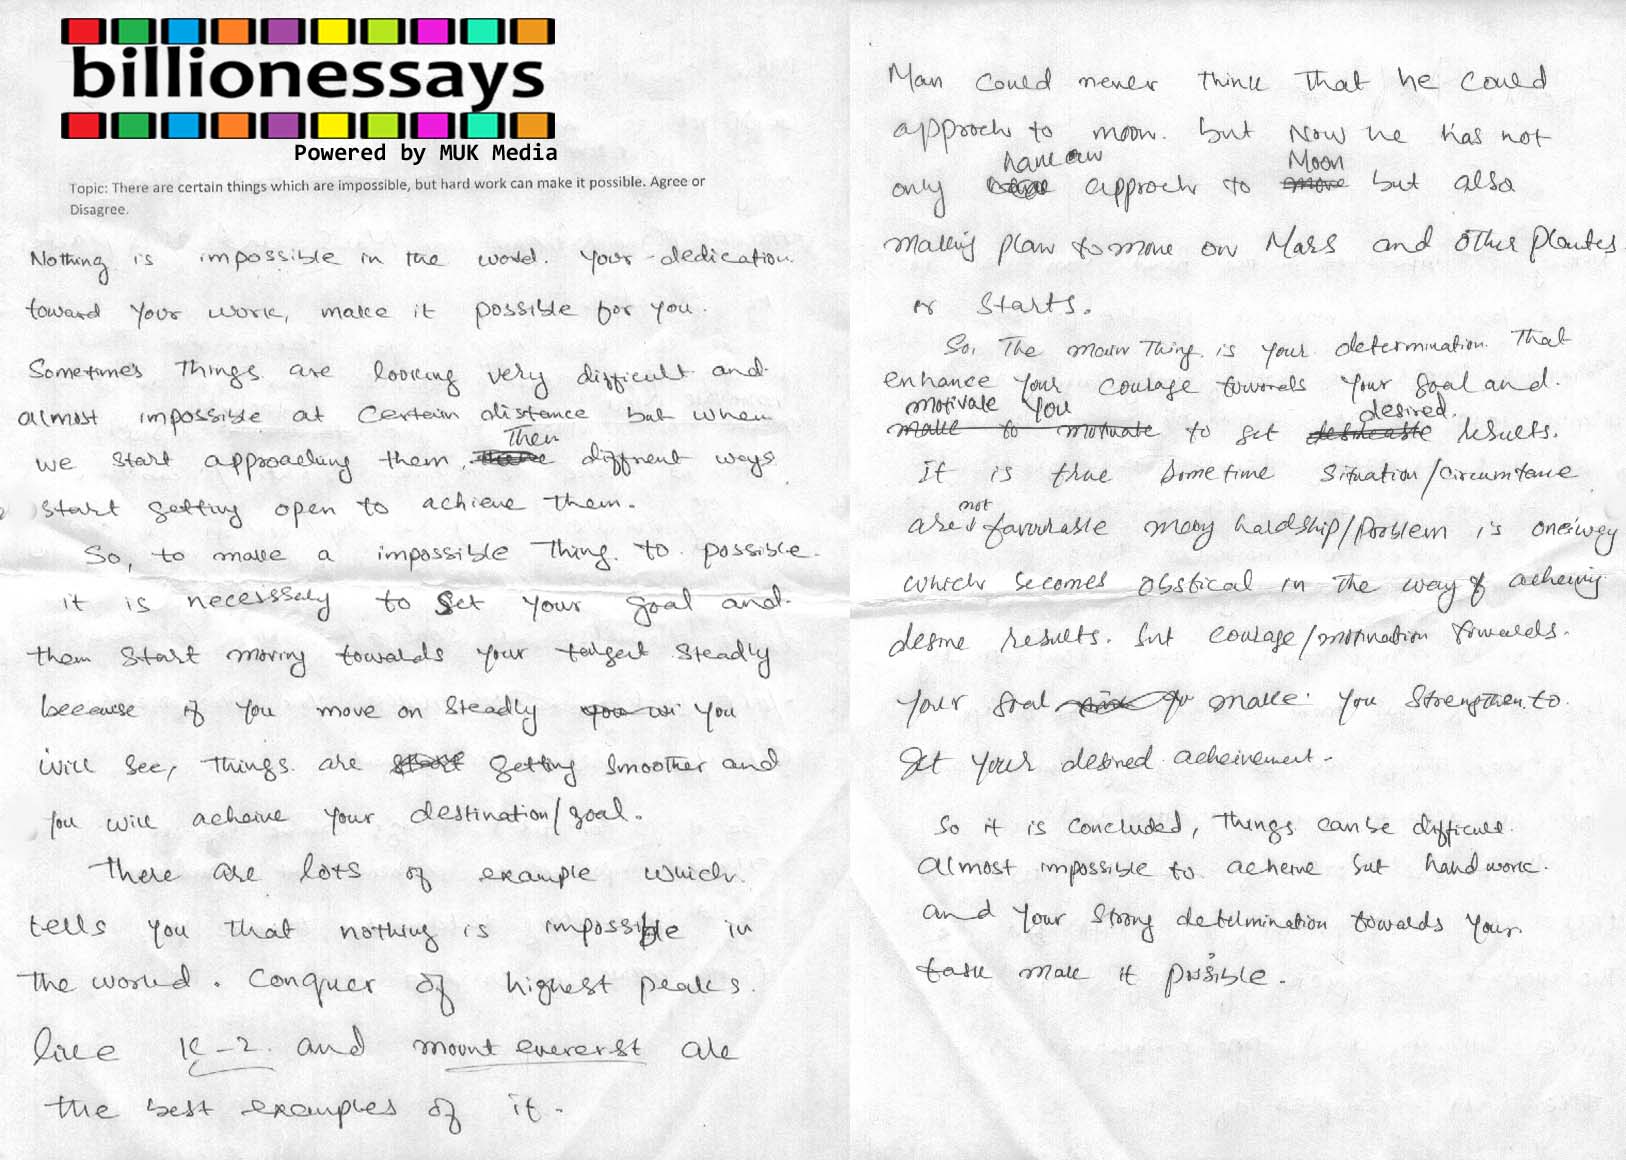 billionessays
Powered by MUK Media
Topic: There are certain things which are impossible, but hard work can make it possible. Agree or
Disagree.
Nothing is impossible in the world. Your dedication
toward your work, make it possible for you.
Sometimes Things are looking very difficult and
almost impossible at certain distance but when
Then
we start approaching them, diffrent ways
start getting open to achieve them.
So, to make a impossible Thing to possible
it is necesssaly to set your goal and
them start moving towards your target steadly
because if you move on steadly you wi you
will see, things are start getting smoother and
you will acheive your destination/goal.
There are lots of example which
tells you that nothing is impossible in
the world. Conquer of highest peaks
like K-2 and mount evererst are
the best examples of it.
Man could never think that he could
approch to moon. but Now he has not
Moon
only approch to move but also
making plan to move on Mars and other Plantes
or Starts.
So, The main Thing is your determination That
enhance your courage towards your goal and
motivate you desired
make to motivate to get desireable results.
It is true sometime situation/circumtance
not
are favourable many hardship/problem is oneiway
which becomes obstical in the way of acheiving
desire results. but courage/motivation towards
your goal make you strengthen to
get your desired acheivement.
So it is concluded, things can be difficult
almost impossible to acheive but hand work
and your strong determination towards your
task make it possible.